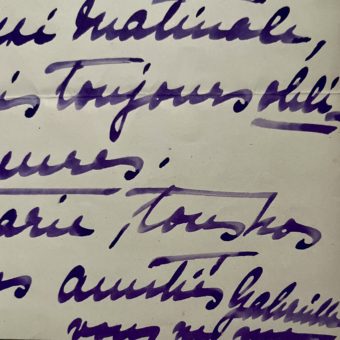 matinale,
is toujours obli-
eures.
arie, tous nos
s amitiés Gabrielle
vous